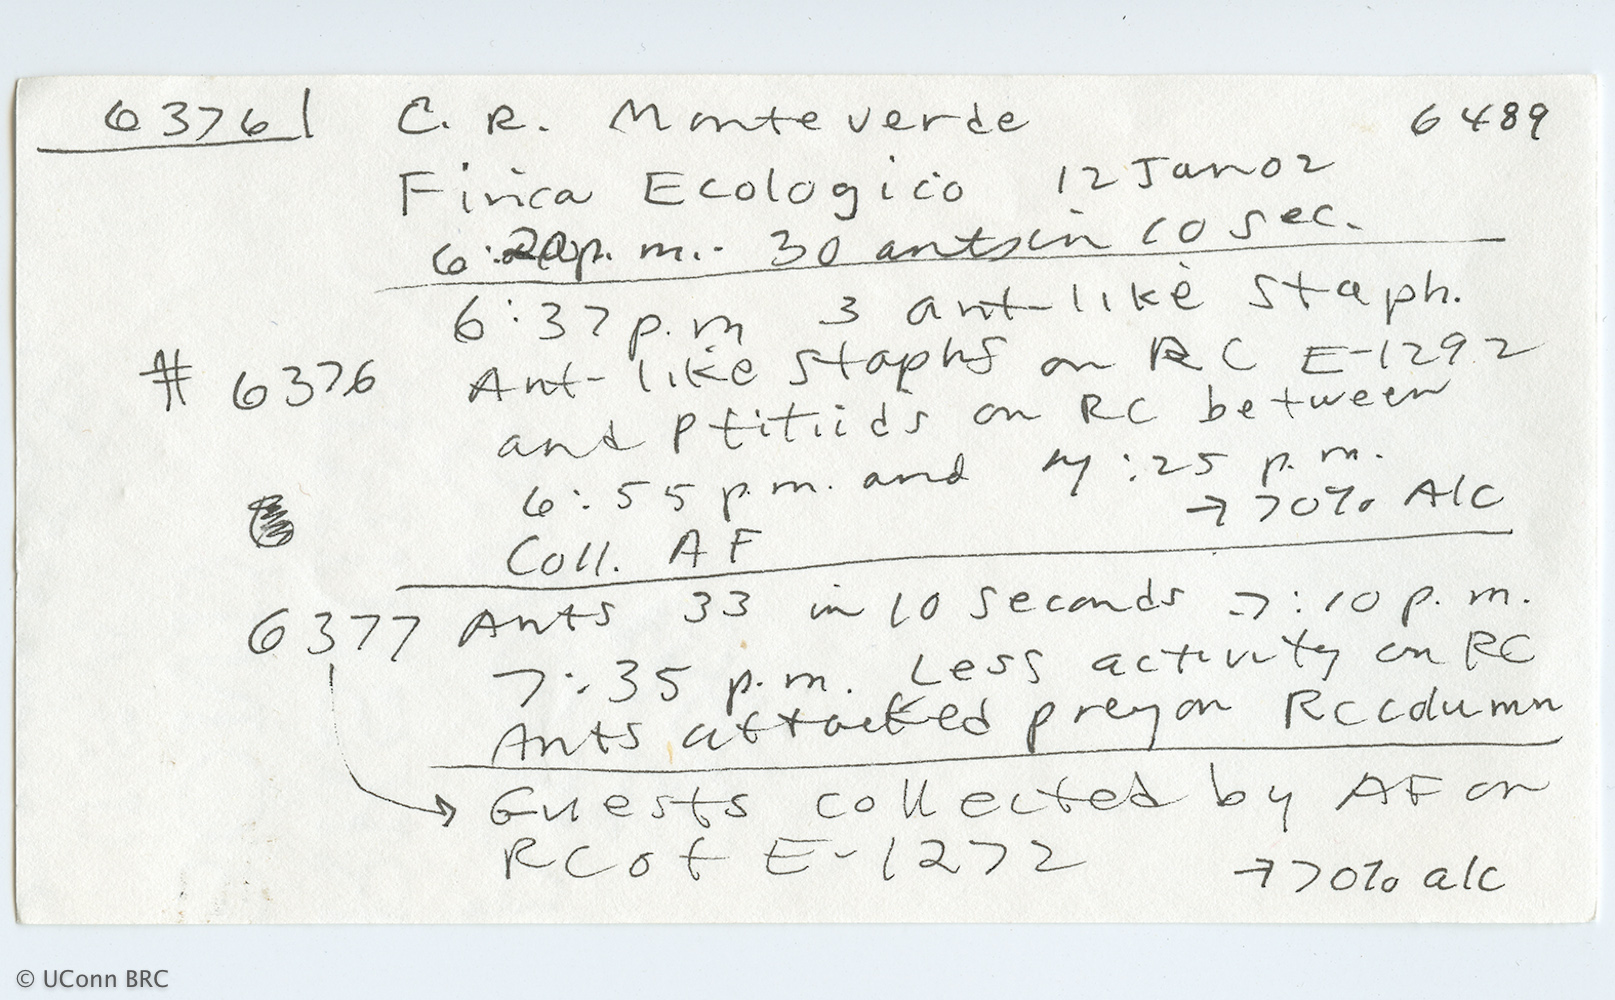 6376 C. R. Monteverde 6489
Finca Ecologico 12 Jan 02
6:20 p.m. 30 ants in 10 sec.
6:37 p.m 3 ant-like staph.
# 6376 Ant-like staphs on RC E-1292
and Ptitiids on RC between
6:55 p.m. and 7:25 p.m.
→ 70% Alc
Coll. AF
6377 Ants 33 in 10 seconds 7:10 p.m.
7:35 p.m. Less activity on RC
Ants attacked prey on RC column
→ Guests collected by AF on
RC of E-1272
→ 70% alc
© UConn BRC